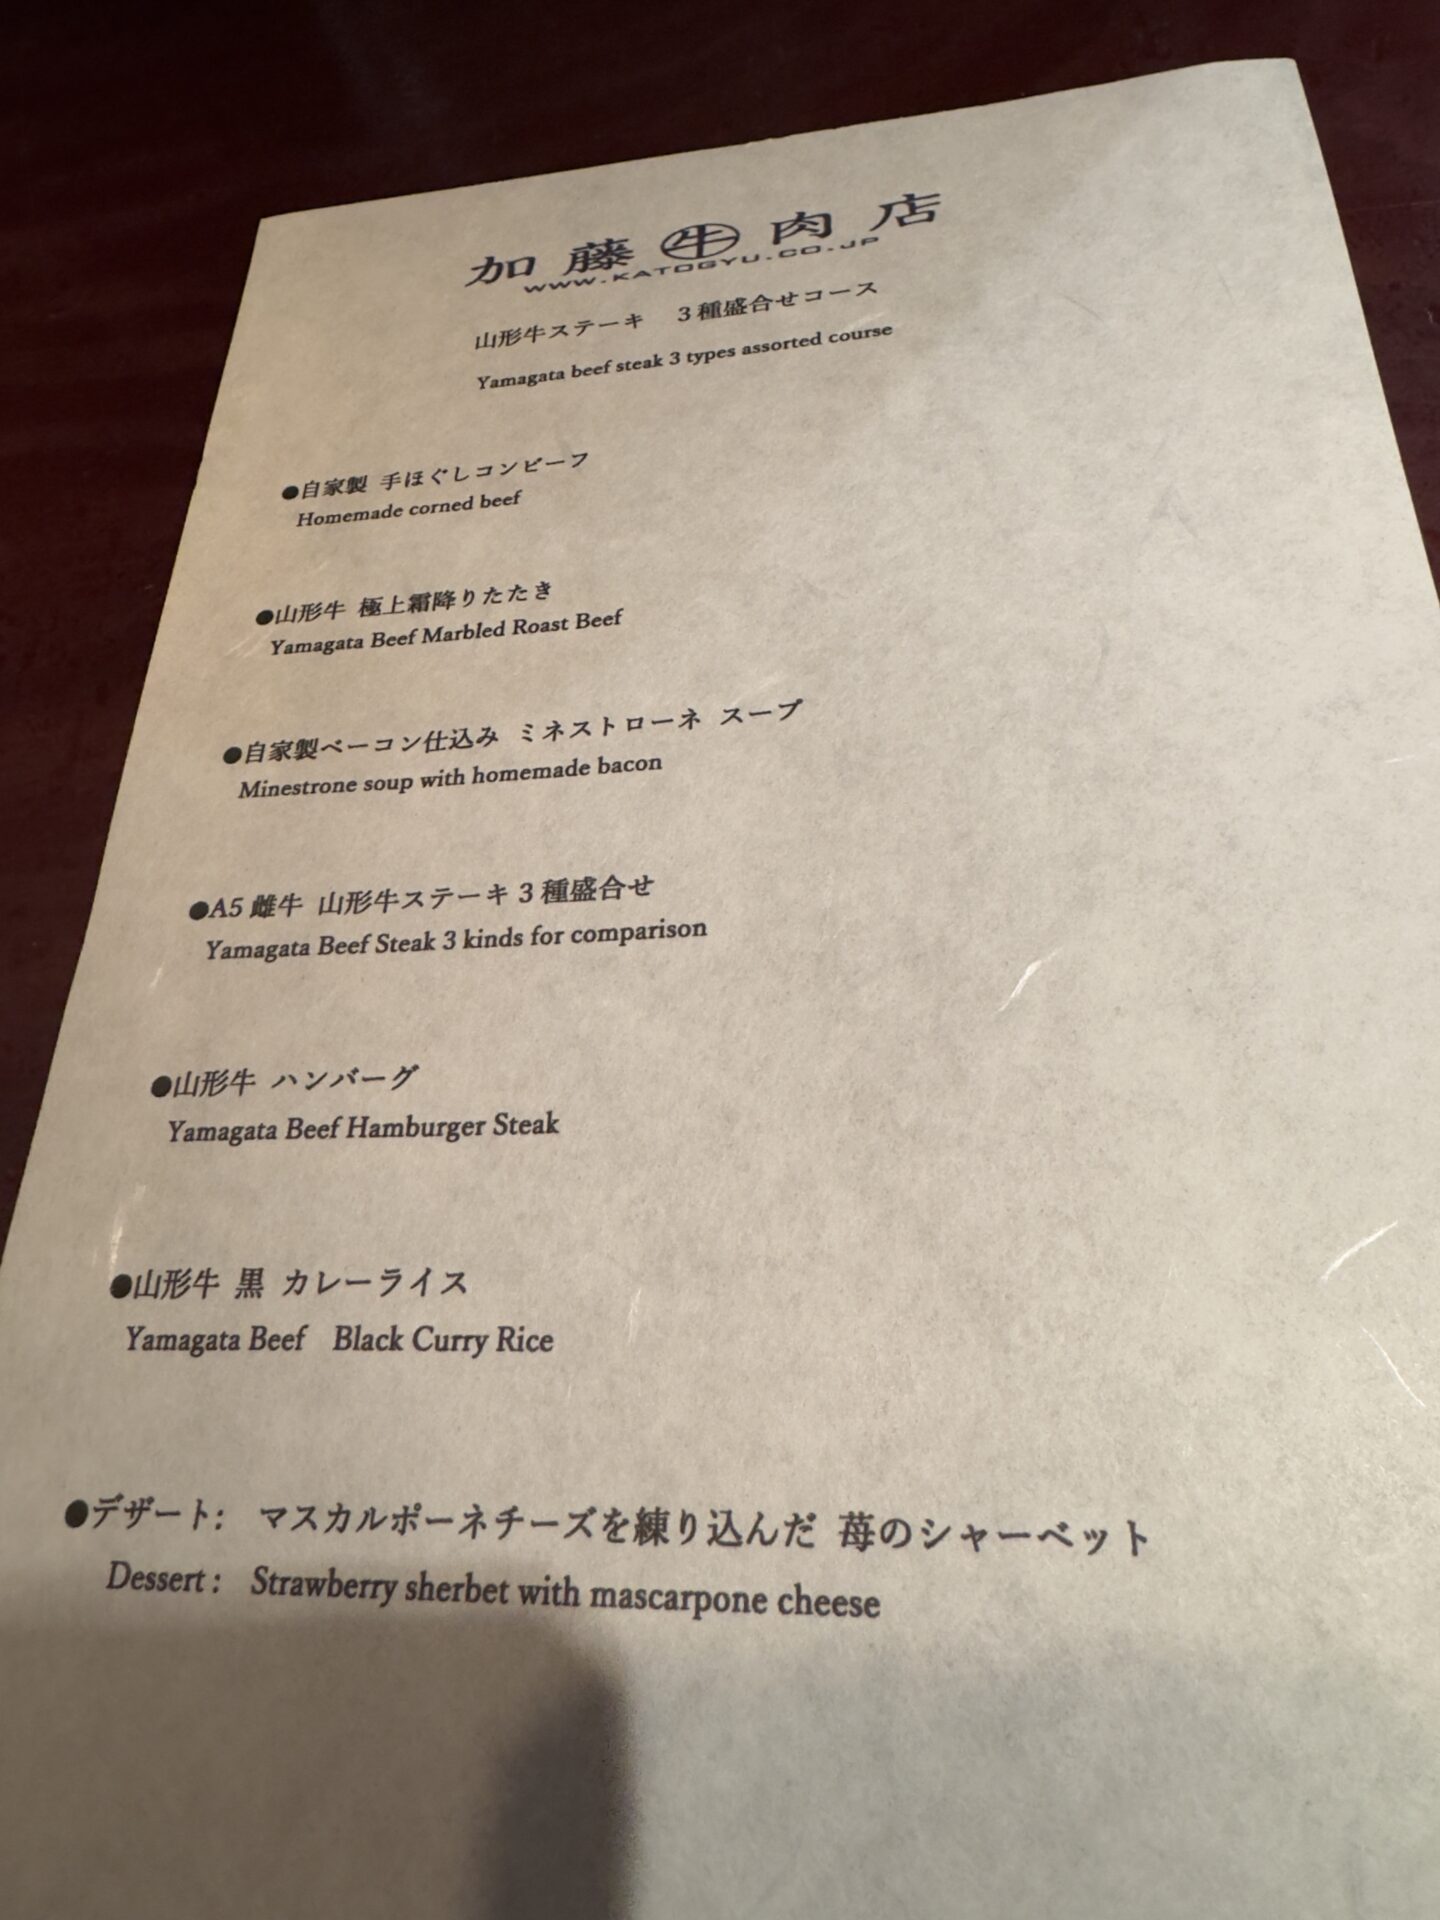 加藤牛肉店
WWW.KATOGYU.CO.JP
山形牛ステーキ　3種盛合せコース
Yamagata beef steak 3 types assorted course
●自家製 手ほぐしコンビーフ
Homemade corned beef
●山形牛 極上霜降りたたき
Yamagata Beef Marbled Roast Beef
●自家製ベーコン仕込み ミネストローネ スープ
Minestrone soup with homemade bacon
●A5 雌牛 山形牛ステーキ 3 種盛合せ
Yamagata Beef Steak 3 kinds for comparison
●山形牛 ハンバーグ
Yamagata Beef Hamburger Steak
●山形牛 黒 カレーライス
Yamagata Beef　Black Curry Rice
●デザート:　マスカルポーネチーズを練り込んだ 苺のシャーベット
Dessert :　Strawberry sherbet with mascarpone cheese